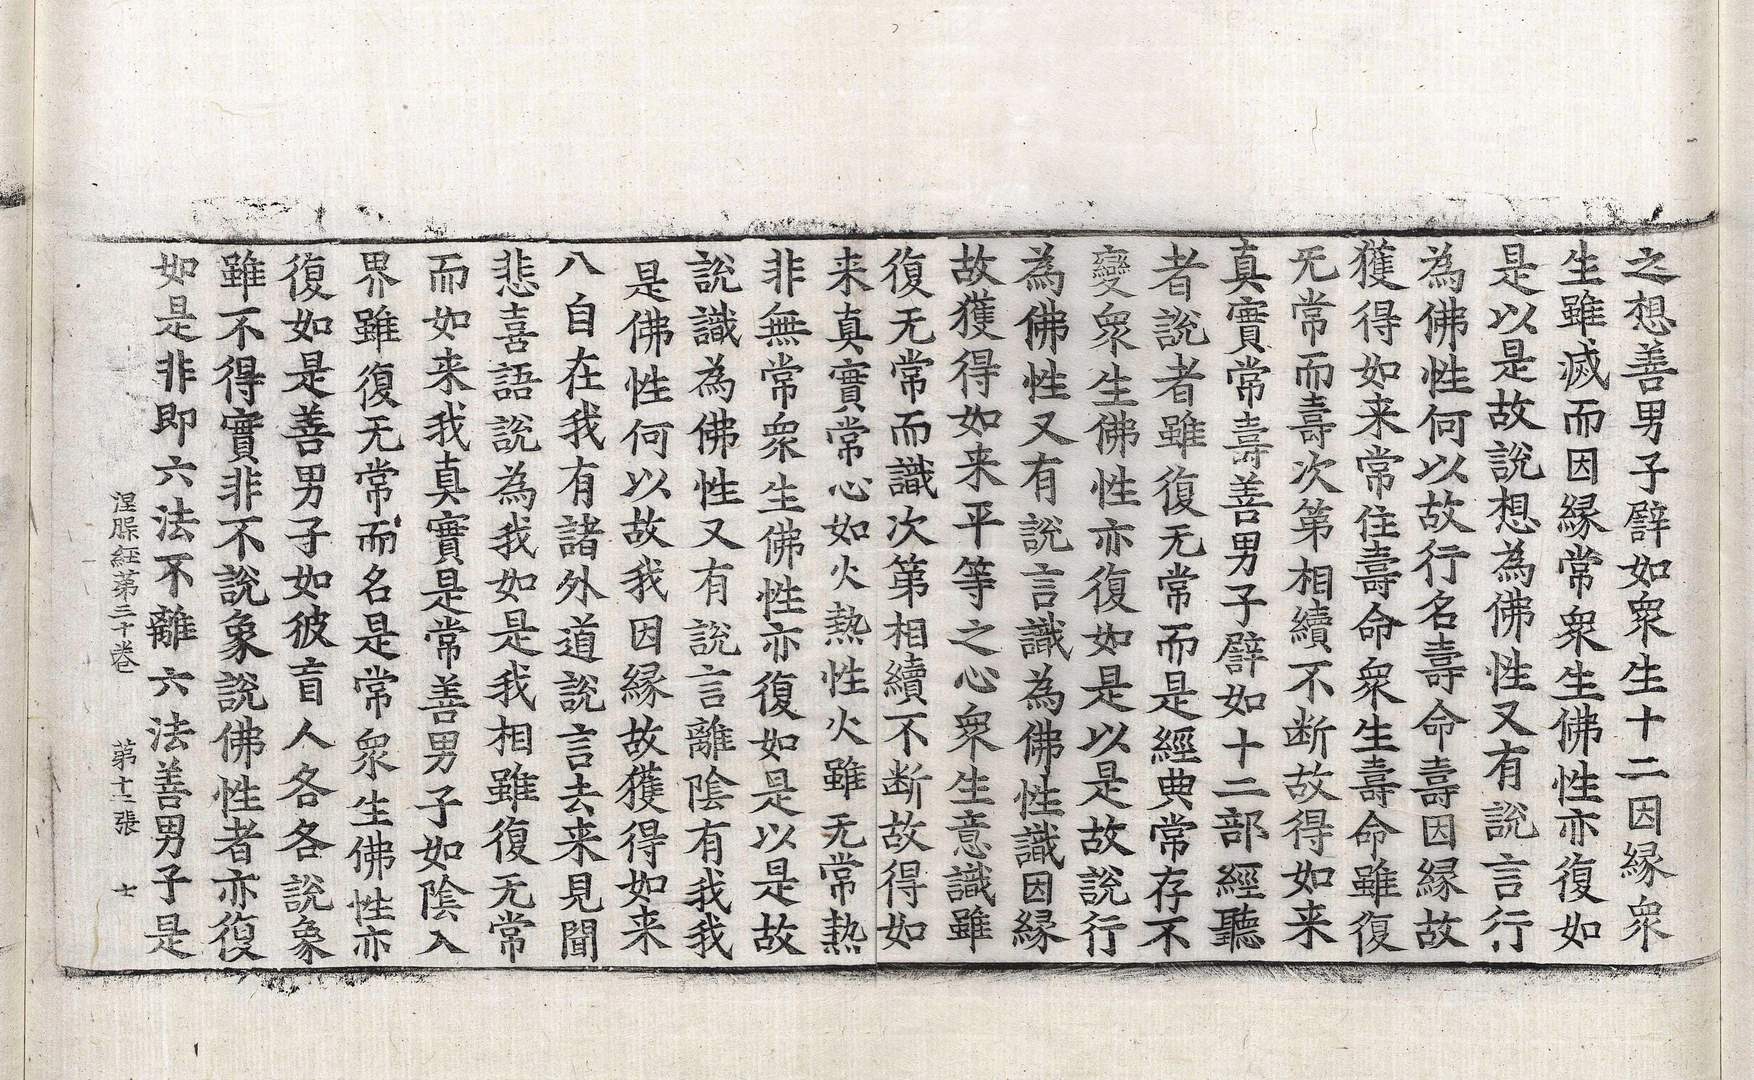 之想善男子譬如衆生十二因縁衆
生雖滅而因縁常衆生佛性亦復如
是以是故說想為佛性又有說言行
為佛性何以故行名壽命壽因縁故
獲得如来常住壽命衆生壽命雖復
无常而壽次第相續不断故得如来
真實常壽善男子譬如十二部經聽
者說者雖復无常而是經典常存不
變衆生佛性亦復如是以是故說行
為佛性又有說言識為佛性識因縁
故獲得如来平等之心衆生意識雖
復无常而識次第相續不断故得如
来真實常心如火熱性火雖无常熱
非無常衆生佛性亦復如是以是故
說識為佛性又有說言離陰有我我
是佛性何以故我因縁故獲得如来
八自在我有諸外道說言去来見聞
悲喜語說為我如是我相雖復无常
而如来我真實是常善男子如陰入
界雖復无常而名是常衆生佛性亦
復如是善男子如彼盲人各各說象
雖不得實非不說象說佛性者亦復
如是非即六法不離六法善男子是
涅槃經第三十卷 第十一張 士